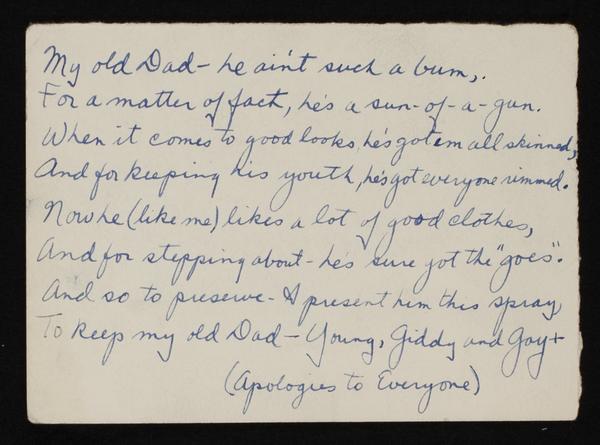 My old Dad - he ain't such a bum,.
For a matter of fact, he's a sun-of-a-gun.
When it comes to good looks, he's got em all skinned,
And for keeping his youth, he's got everyone rimmed.
Now he (like me) likes a lot of good clothes,
And for stepping about - he's sure got the "goes".
And so to preserve - I present him this spray,
To keep my old Dad - Young, Giddy and Gay +
(Apologies to Everyone)